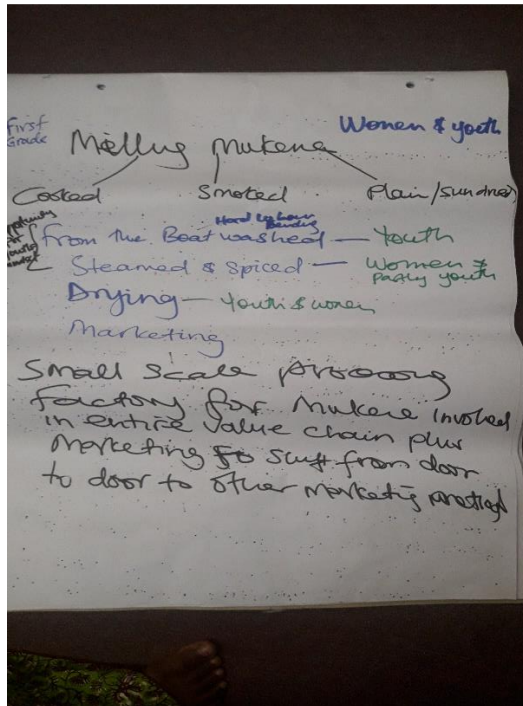 First
Grade
Women & youth
Milling Mukene
Cooked Smoked Plain/sundried
Hard labour
Bending
From the Boat washed — Youth
Steamed & Spiced — Women &
Partly youth
Drying — Youth & women
Marketing
Small scale processing
factory for Mukene involved
in entire value chain plus
Marketing to shift from door
to door to other marketing practices